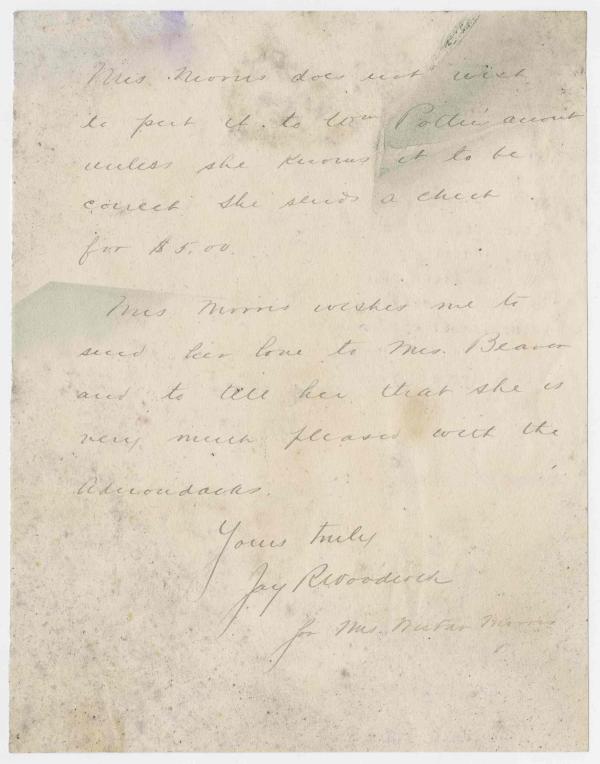 Mrs. Morris does not wish
to put it to Wm Potter's amount
unless she knows it to be
correct She sends a check
for $5.00.
Mrs Morris wishes me to
send her love to Mrs. Beaver
and to tell her that she is
very much pleased with the
Adirondacks.
Yours truly
Jay R Woodcock
for Mrs. Morris